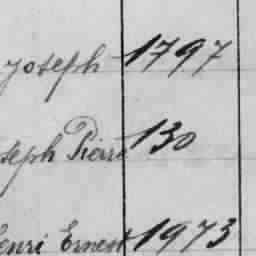 Joseph 1797
seph Pierre 130
enri Ernest 1973